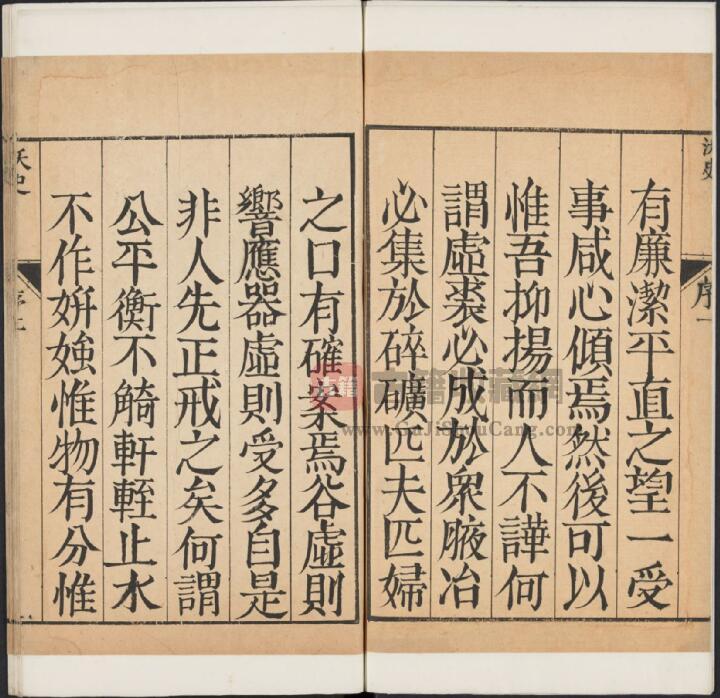 有廉潔平直之望一受
事咸心傾焉然後可以
惟吾抑揚而人不譁何
謂虛裘必成於衆腋冶
必集於碎礦匹夫匹婦
之口有確案焉谷虛則
響應器虛則受多自是
非人先正戒之矣何謂
公平衡不觭軒輊止水
不作妍媸惟物有分惟
序一
www.GuJiShouCang.com